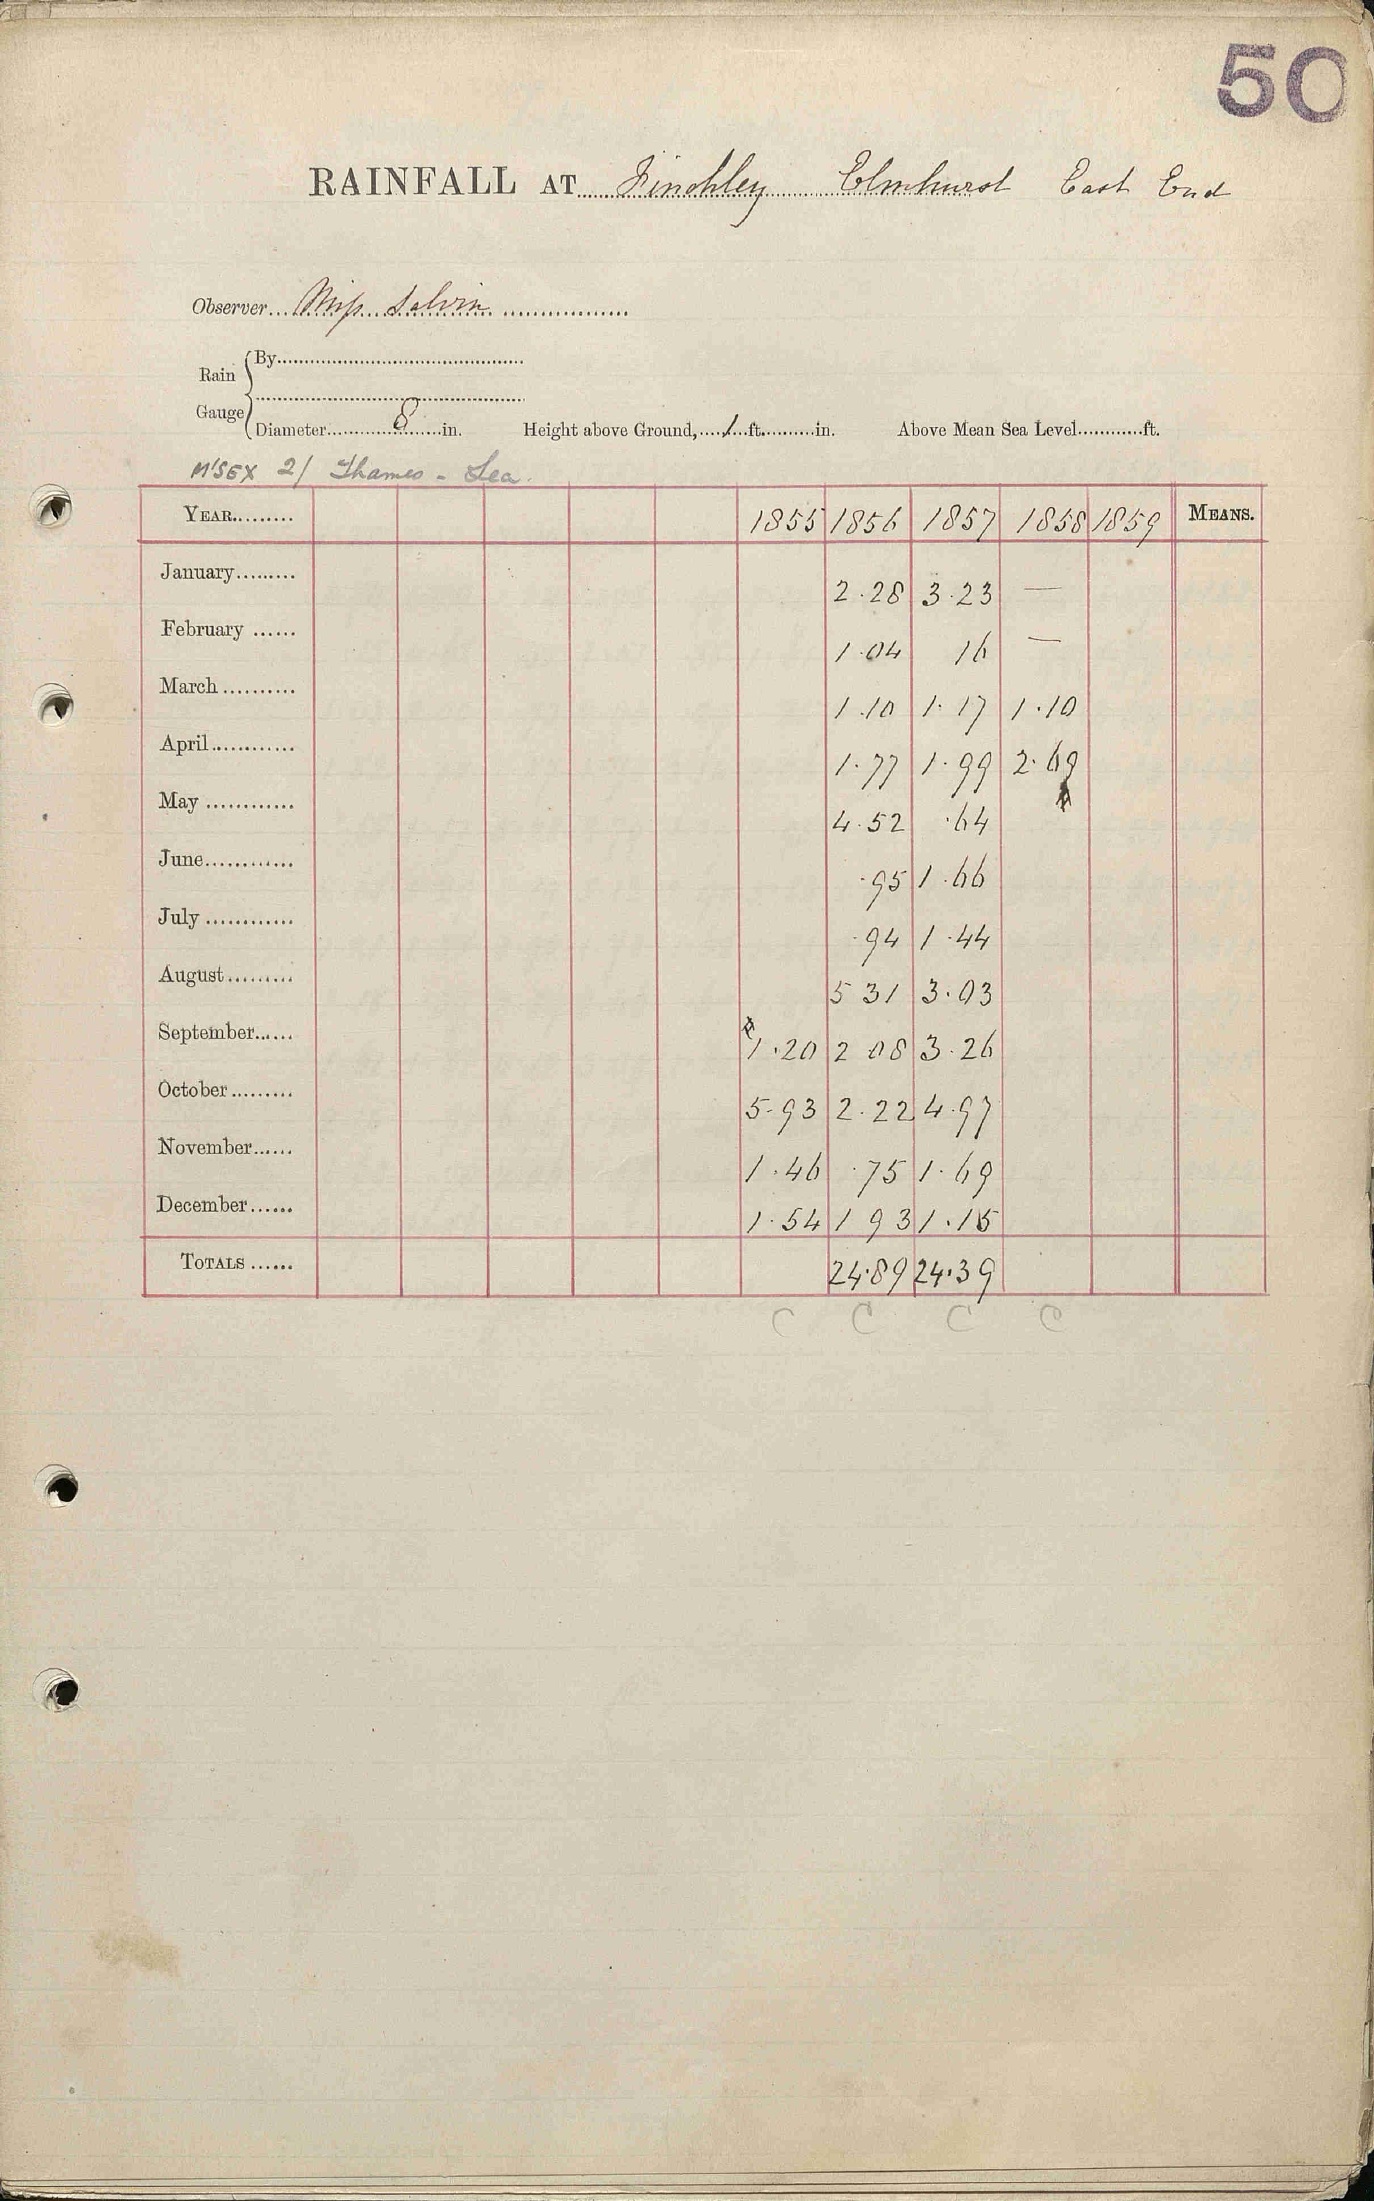 50
RAINFALL AT Finchley Elmhurst East End
Observer Miss Salvin
Rain Gauge { By
Diameter 8 in. Height above Ground, 1 ft. in. Above Mean Sea Level ft.
M'SEX 2/ Thames - Lea.
YEAR 1855 1856 1857 1858 1859 MEANS.
January 2.28 3.23 —
February 1.04 16 —
March 1.10 1.17 1.10
April 1.77 1.99 2.69
May 4.52 .64
June .95 1.66
July .94 1.44
August 5 31 3.03
September 1.20 2 08 3.26
October 5.93 2.22 4.97
November 1.46 .75 1.69
December 1.54 1 93 1.15
TOTALS 24.89 24.39
C C C C